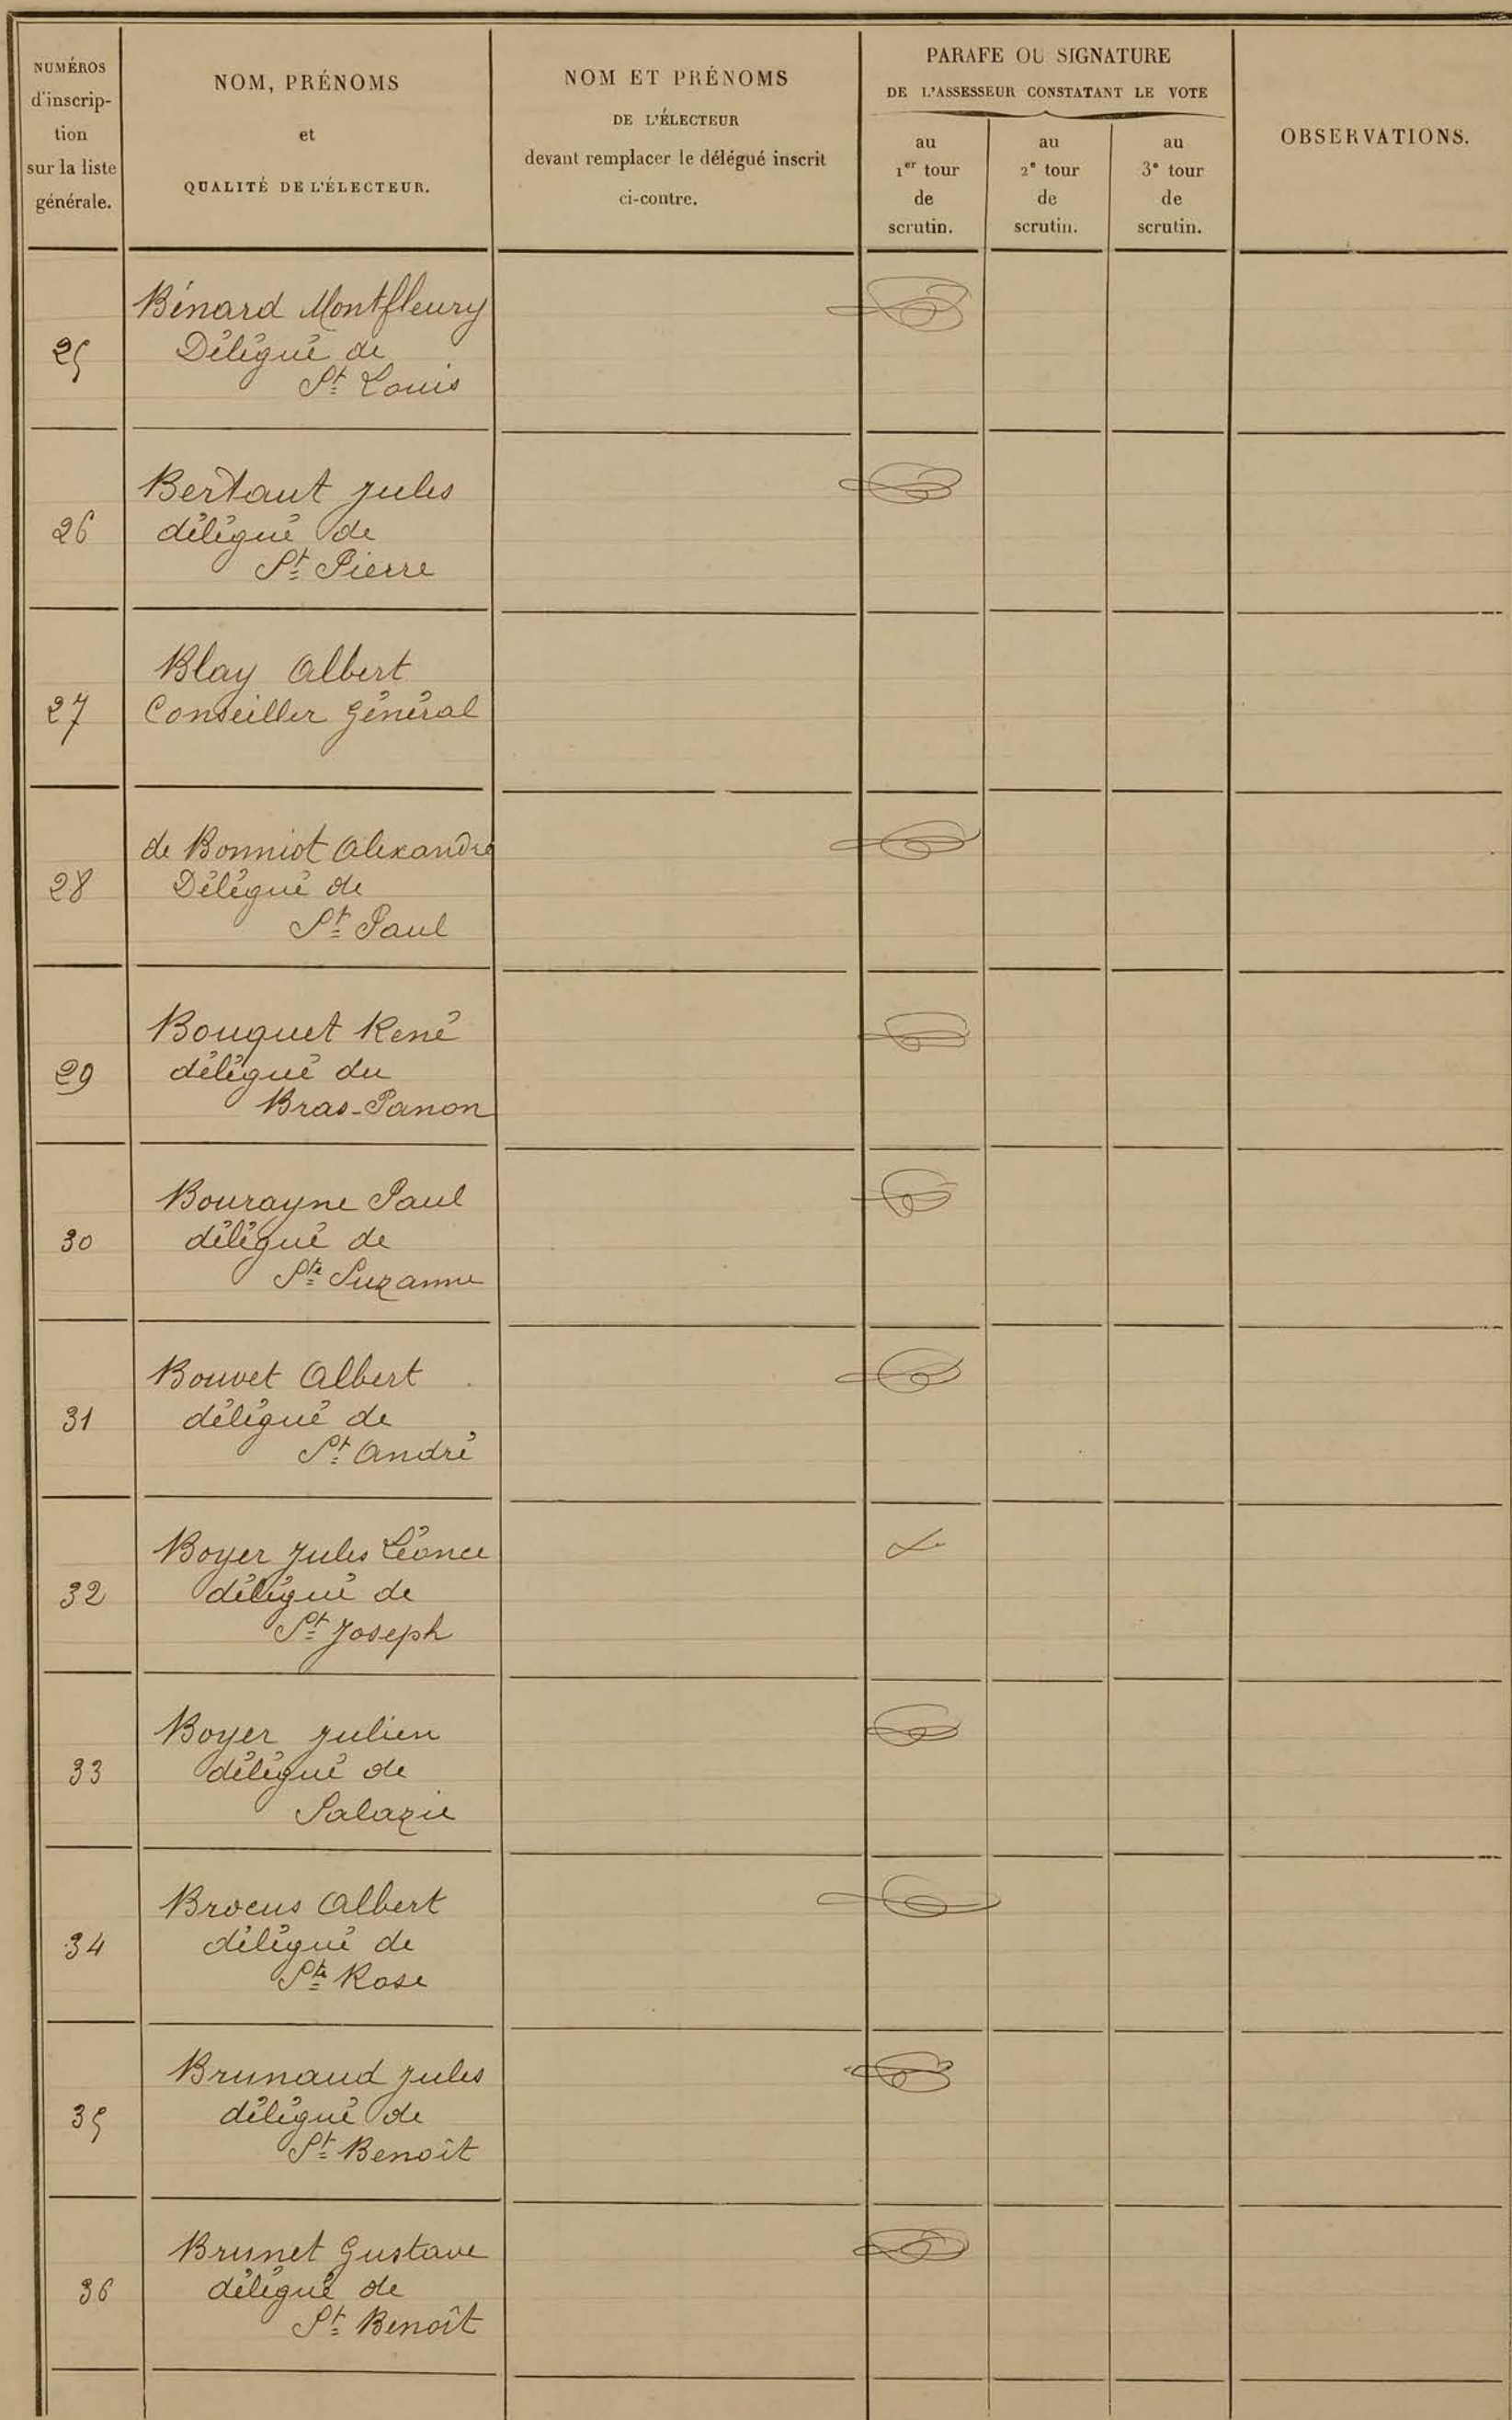 NUMÉROS
d'inscrip-
tion
sur la liste
générale.
NOM, PRÉNOMS
et
QUALITÉ DE L'ÉLECTEUR.
NOM ET PRÉNOMS
DE L'ÉLECTEUR
devant remplacer le délégué inscrit
ci-contre.
PARAFE OU SIGNATURE
DE L'ASSESSEUR CONSTATANT LE VOTE
au
1er tour
de
scrutin.
au
2e tour
de
scrutin.
au
3e tour
de
scrutin.
OBSERVATIONS.
25
Bénard Montfleury
Délégué de
St Louis
26
Bertaut Jules
délégué de
St Pierre
27
Blay Albert
Conseiller Général
28
de Bonniot Alexandre
Délégué de
St Paul
29
Bouquet René
délégué du
Bras-Panon
30
Bourayne Paul
délégué de
Ste Suzanne
31
Bouvet Albert
délégué de
St André
32
Boyer Jules Léonce
délégué de
St Joseph
33
Boyer Julien
délégué de
Salazie
34
Brocus Albert
délégué de
Ste Rose
35
Brunaud Jules
délégué de
St Benoît
36
Brunet Gustave
délégué de
St Benoît